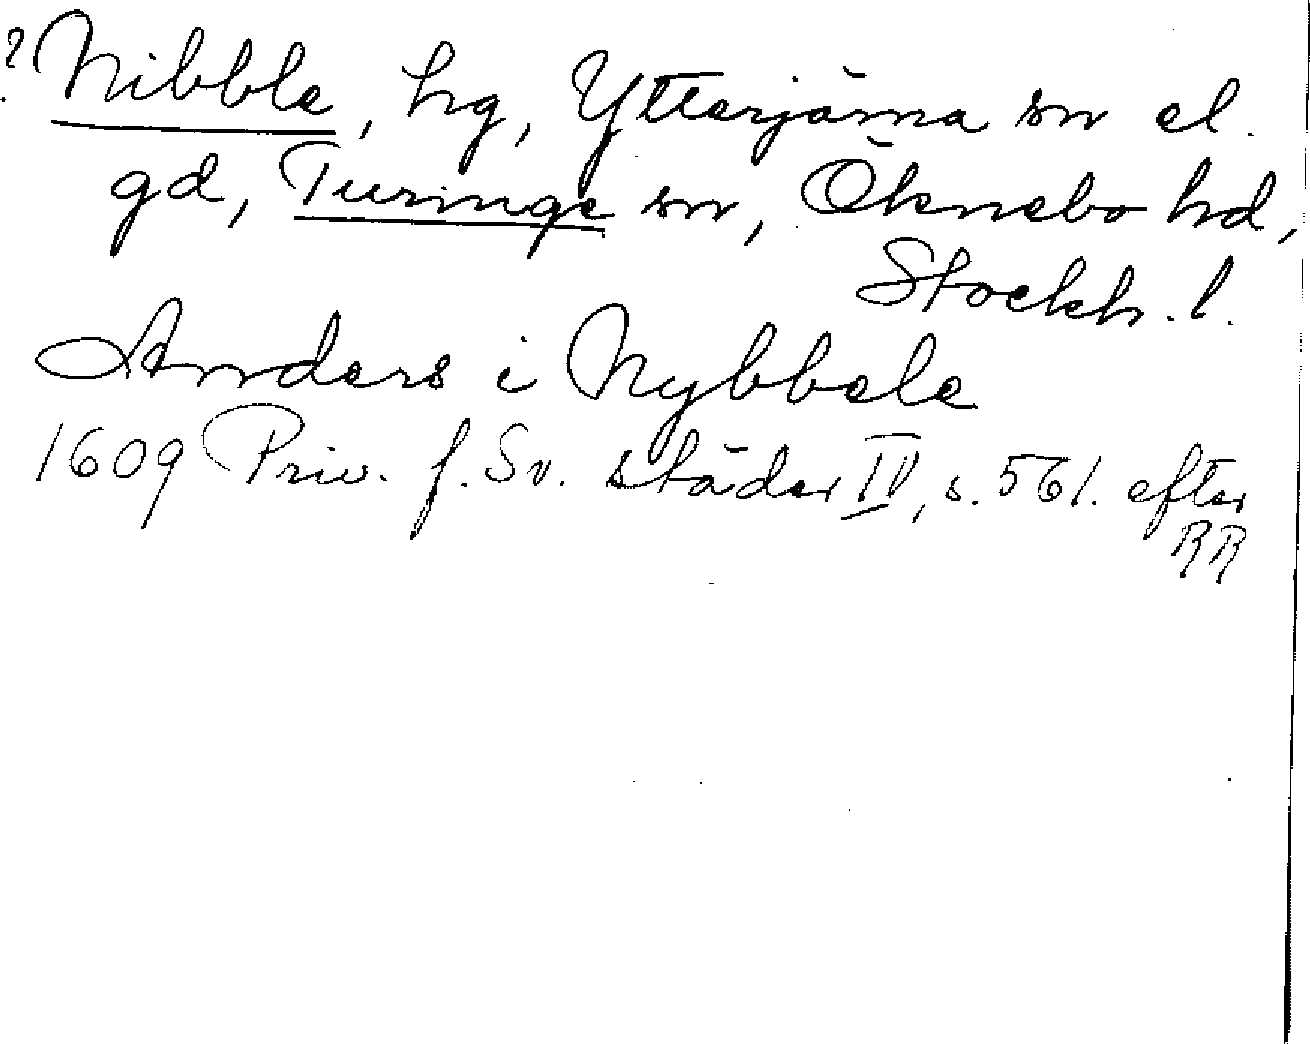 ? Nibble, hg, Ytterjärna sn el.
gd, Turinge sn, Öknebo hd,
Stockh. l.
Anders i Nybbele
1609 Priv. f. Sv. städer IV, s. 561. efter
RR